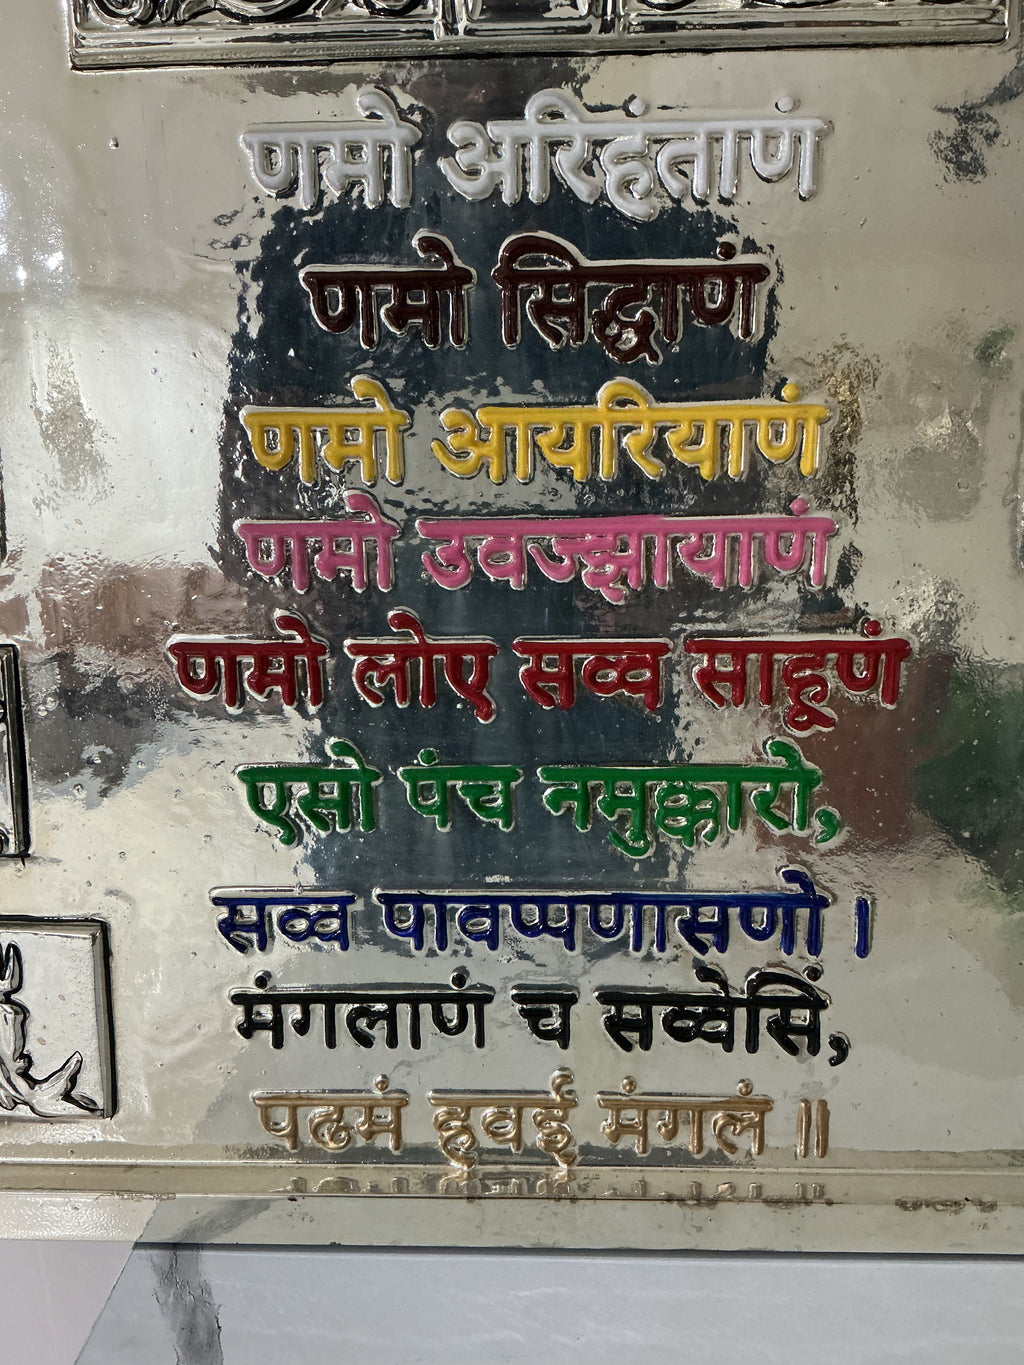 णमो अरिहंताणं
णमो सिद्धाणं
णमो आयरियाणं
णमो उवज्झायाणं
णमो लोए सव्व साहूणं
एसो पंच नमुक्कारो,
सव्व पावप्पणासणो ।
मंगलाणं च सव्वेसिं,
पढमं हवई मंगलं ॥